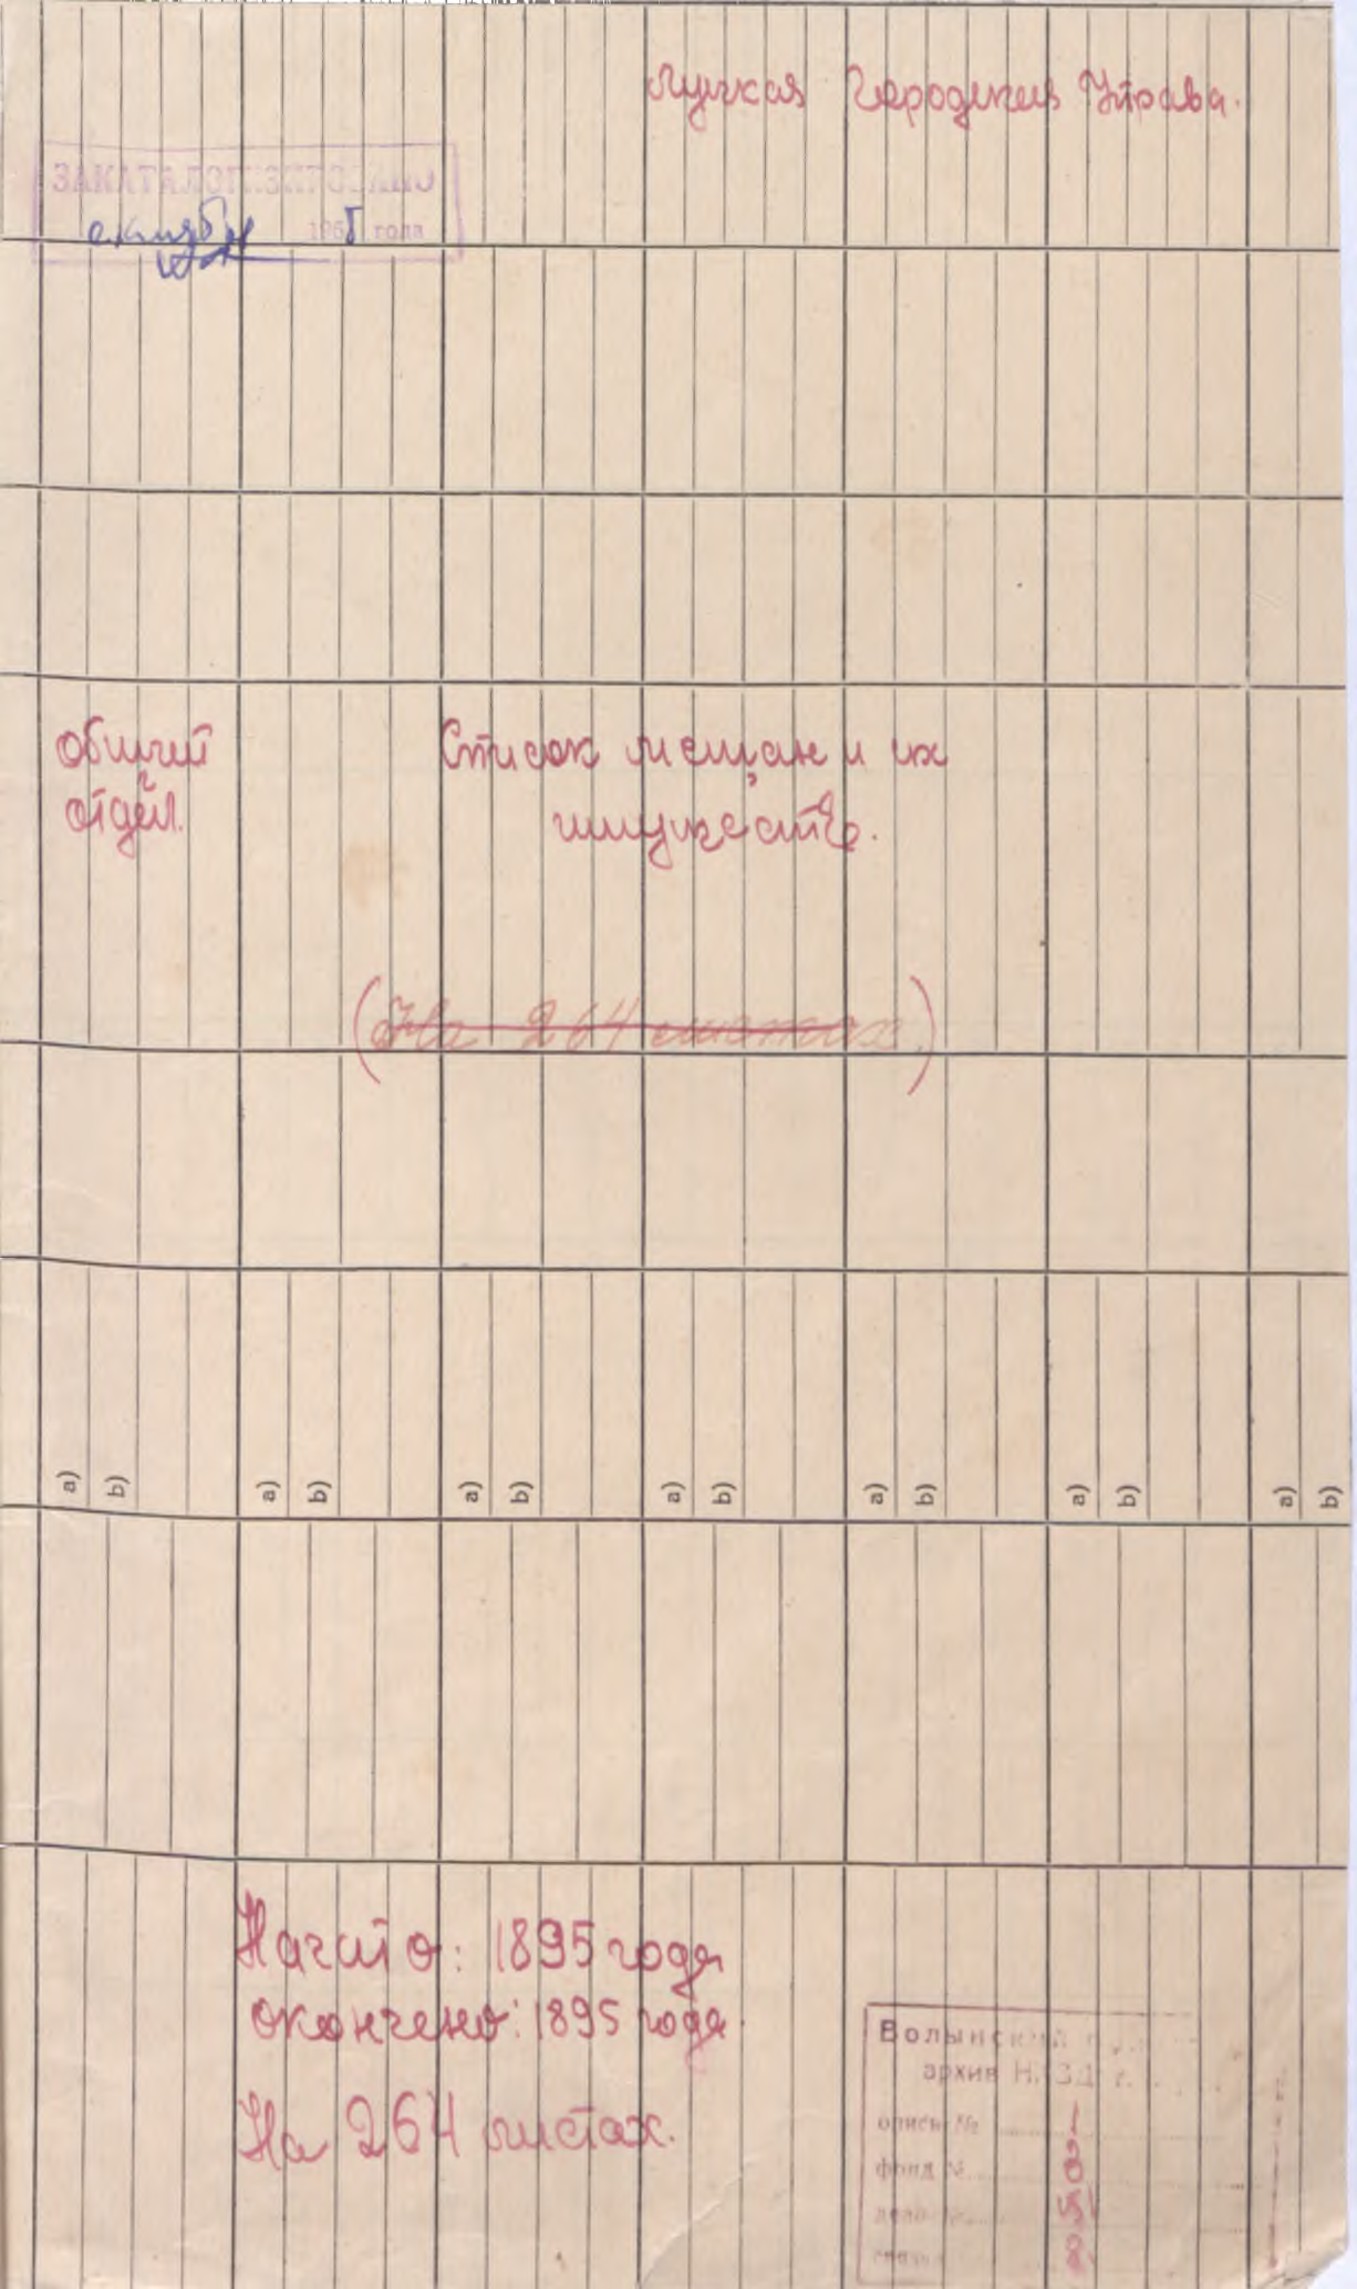 Луцкая Городская Управа.
ЗАКАТАЛОГИЗИРОВАНО
октябрь 1965 года
общий
отдел.
Список мещан и их
имуществ.
(На 264 листах.)
a) b) a) b) a) b) a) b) a) b) a) b) a) b)
Начато: 1895 года
окончено: 1895 года.
На 264 листах.
Волынский
архив НКВД
опись №
фонд №
дело №